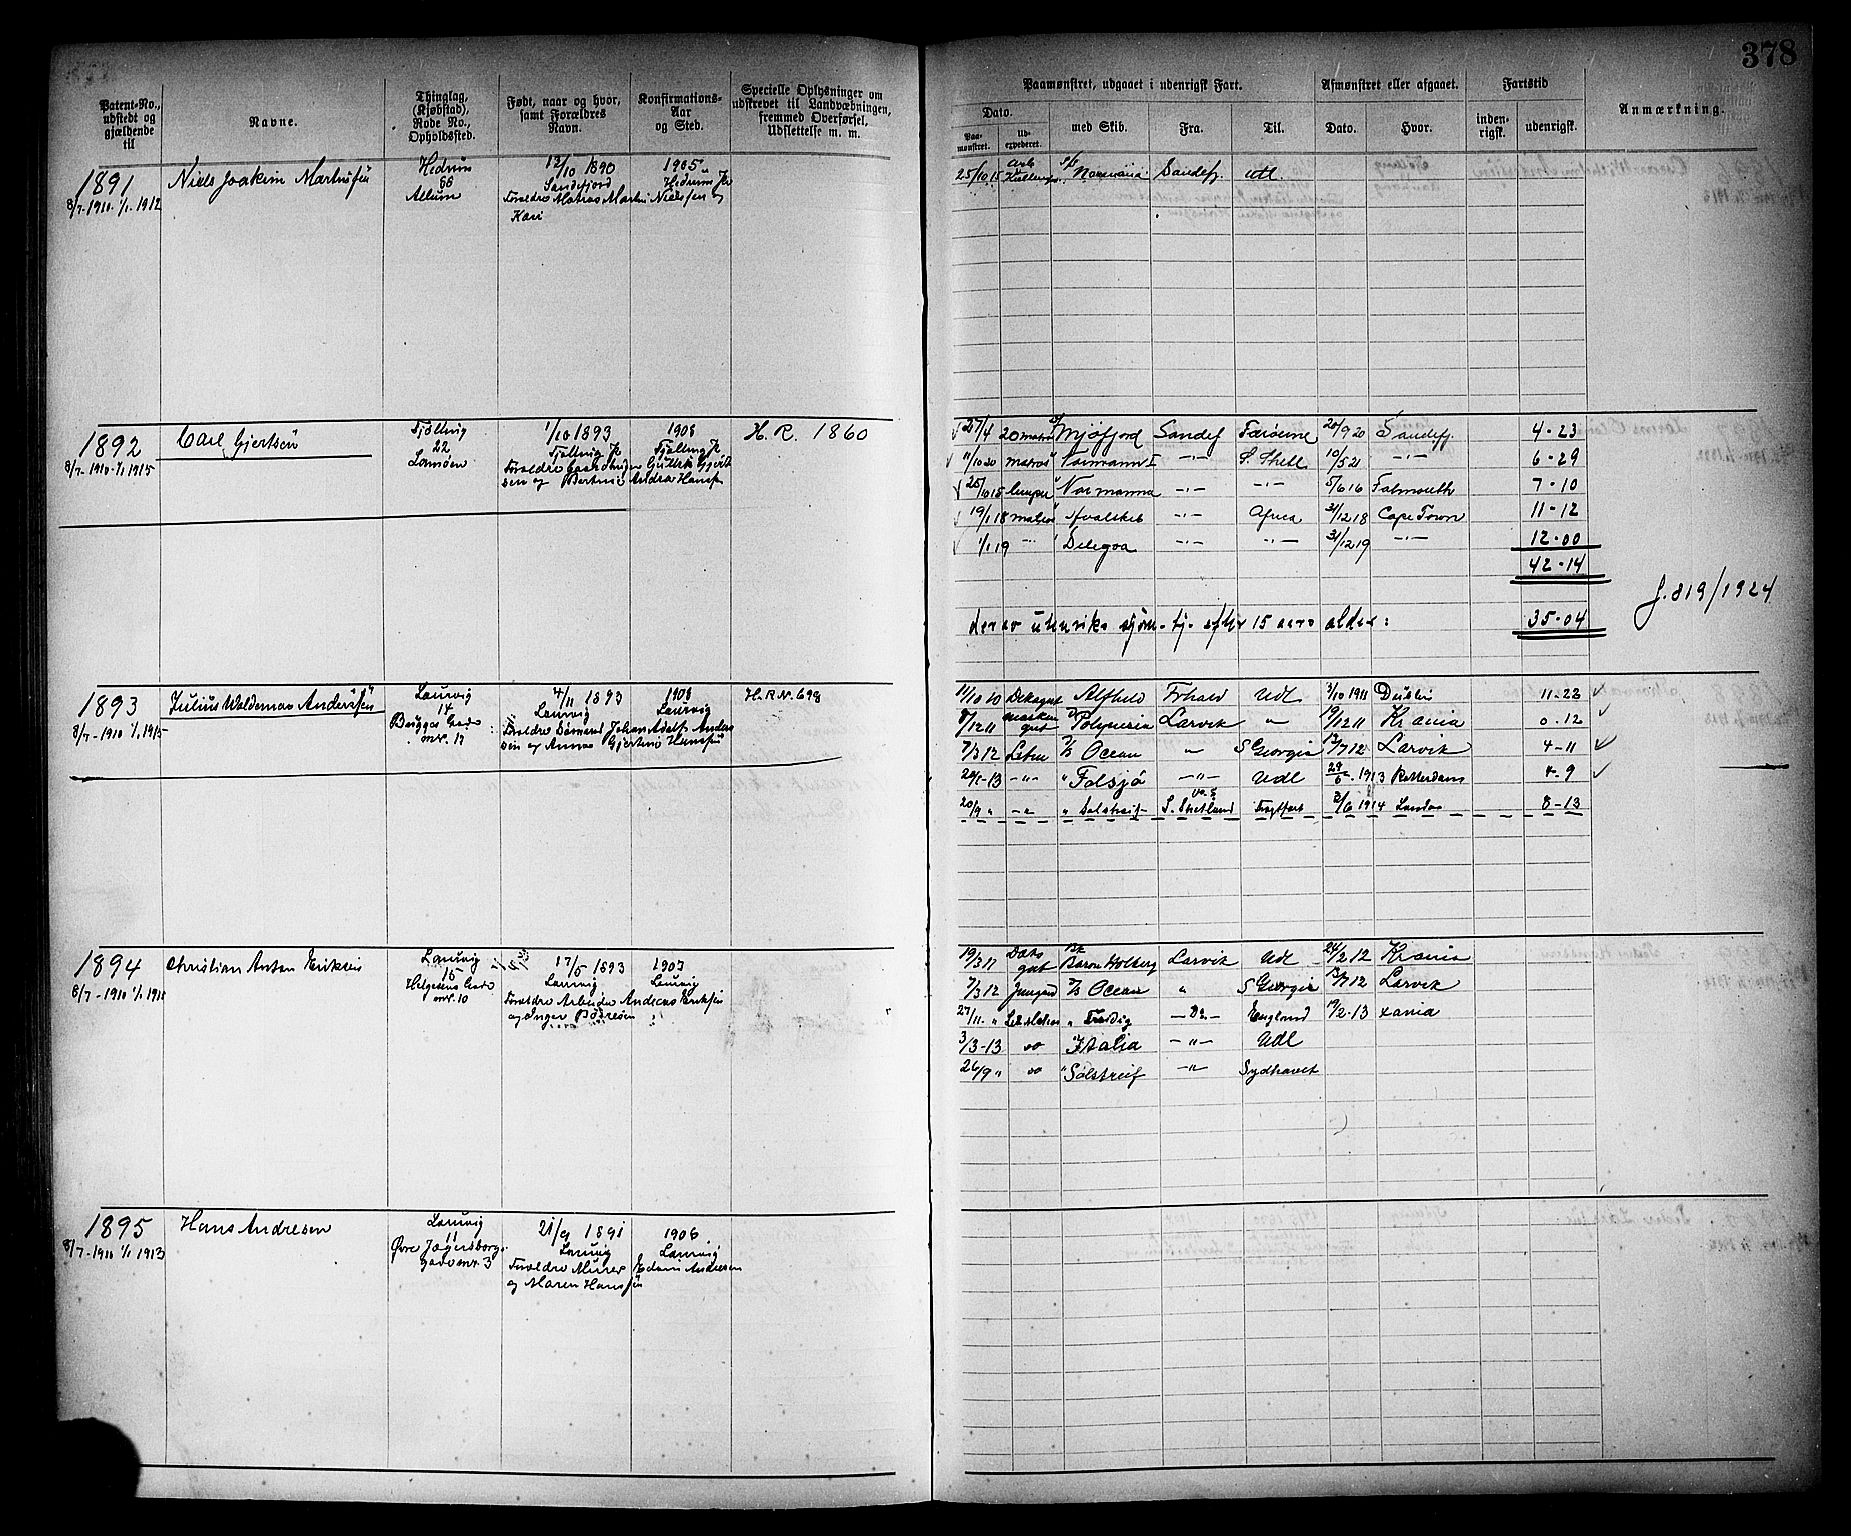 378
Patent-No., udstedt og gjældende til
Navne.
Thinglag, (Kjøbstad), Rode No., Opholdssted.
Født, naar og hvor, samt Forældres Navn.
Konfirmations-Aar og Sted.
Specielle Oplysninger om udskrevet til Landværbningen, fremmed Overførsel, Udslettelse m. m.
Paamønstret, udgaaet i udenrigsk Fart.
Afmønstret eller afgaaet.
Fartstid
Anmærkning.
Dato.
Paamønstret.
Udexpederet.
med Skib.
Fra.
Til.
Dato.
Hvor.
indenrigsk.
udenrigsk.
1891
8/7-1910-1/1-1912
Niels Joakim Martinsen
Hedrum
Allum
12/10 1890
Sandefjord
Forældre Matros Martin Nielsen og
Kari
1905
Hedrum K
25/10 15 Normania Sandefj. Udl
1892
8/7-1910-1/1 1915
Carl Gjertsen
Tjølling
22
Lamøen
1/10 1893
Tjølling K
1908
Tjølling K
H. R. 1860
27/4 20 matros Mjøfjord Sandef Færøerne 20/9 20 Sandefj. 4-23
11/10 20 matros Normann I -"- S. Shetl 10/5 21 -"- 6-29
25/10 15 Normanna -"- -"- 5/6 16 Falmouth 7-10
19/1 18 matros Hvalskib -"- Africa 31/12 18 Cape Town 11-12
1/1 19 -"- Delegoa -"- -"- 31/12 19 -"- 12-00
42-14
derav utenriks sjøm.tj. efter 15 aars alder: 35-04
J. 819/1924
1893
8/7-1910 1/1 1915
Julius Waldemar Anderssen
Laurvig
14
Brygge Gade
nr. 19
4/11 1893
Laurvig
Forældre Sømand Johan Adolf Anderssen og Anna Gjertine Hansen
1908
Laurvig
H.R.N. 698
11/10 10 Dæksgut Alfhild Frhald Udl 3/10 1911 Dublin 11-23
8/12 11 Polynesia Larvik " 19/12 11 Krania 0-12
7/3 12 Letm Ocean " S Georgia 12/7 12 Larvik 4-11
20/1-13 -"- " Falsjø -"- Udl 29/6 1913 Rotterdam 4-9
20/9 " -"- " Solstreif S. Shetland Fragtfart 3/6 1914 London 8-13
1894
8/7-1910 1/1 1915
Christian Anton Eriksen
Laurvig
15
Helgesens Gade
nr. 10
17/5 1893
Laurvig
Forældre Arbeider Andreas Eriksen
og Inger Børresen
1907
Laurvig
19/3 11 Dæksgut Bk Baron Holberg Larvik Udl 24/2 12 Krania
7/3 12 Jungmd Ocean " S Georgia 12/7 12 Larvik
27/11 " Letmatros " Fredig -Do- England 19/2-13 xania
3/3-13 do Italia -"- Udl
26/9 " do " Solstreif -"- Sydhavet
1895
8/7-1910 1/1 1913
Hans Andresen
Laurvig
11
Øvre Jægersborgs
gade nr. 3
21/9 1891
Laurvig
Forældre Murer Edvin Andresen
og Maren Hansen
1906
Laurvig